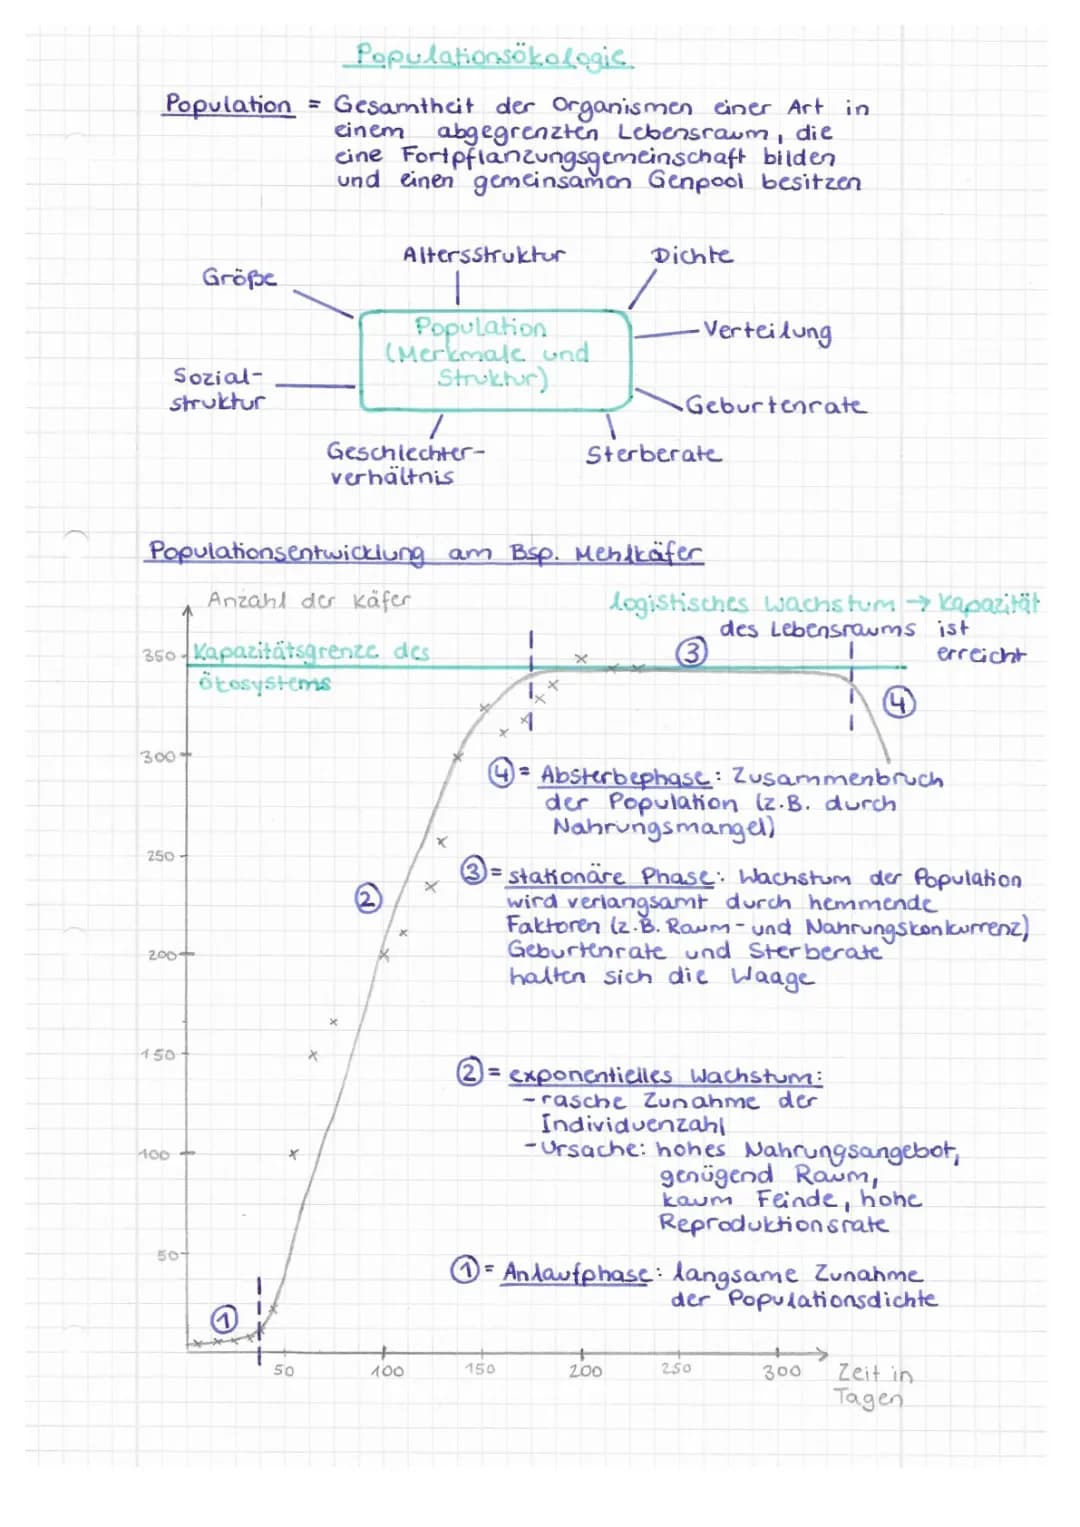 Populationsökologie
Population = Gesamtheit der Organismen einer Art in
einem abgegrenzten Lebensraum, die
eine Fortpflanzungsgemeinschaft bilden
und einen gemeinsamen Genpool besitzen
Altersstruktur
Dichte
Größe
Population
(Merkmale und
Struktur)
Verteilung
Sozial-
struktur
Geburtenrate
Geschlechter-
verhältnis
Sterberate
Populationsentwicklung am Bsp. Mehlkäfer
Anzahl der Käfer
logistisches Wachstum → Kapazität
des Lebensraums ist
erreicht
350
Kapazitätsgrenze des
Ökosystems
③
④
300
④ = Absterbephase: Zusammenbruch
der Population (z.B. durch
Nahrungsmangel)
250
②
③ = stationäre Phase: Wachstum der Population
wird verlangsamt durch hemmende
Faktoren (z.B. Raum- und Nahrungskonkurrenz)
Geburtenrate und Sterberate
halten sich die Waage
200
150
② = exponentielles Wachstum:
- rasche Zunahme der
Individuenzahl
- Ursache: hohes Nahrungsangebot,
genügend Raum,
kaum Feinde, hohe
Reproduktionsrate
100
50
① = Anlaufphase: langsame Zunahme
der Populationsdichte
①
50 100 150 200 250 300 Zeit in
Tagen